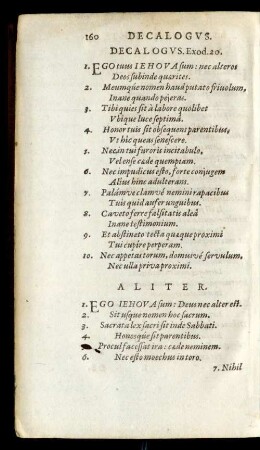 160 DECALOGVS.
DECALOGVS. Exod. 20.
1. EGO tuus IEHOVA sum: nec alteros
Deos subinde quærites.
2. Meumque nomen haud putato friuolum,
Inane quando peieras.
3. Tibi quies sit à labore quolibet
Vbique luce septima.
4. Honor tuis sit obsequens parentibus,
Vt hic queas senescere.
5. Nec in tui furoris incitabulo,
Vel ense cæde quempiam.
6. Nec impudicus esto, forte conjugem
Alius hinc adulteram.
7. Palámve clamvé nemini rapacibus
Tuis quid aufer unguibus.
8. Caveto ferre falsitatis aleâ
Inane testimonium.
9. Et abstineto tecta quæque proximi
Tui cupire perperam.
10. Nec appetas torum, domumvé servulum,
Nec ulla priva proximi.
ALITER.
1. EGO IEHOVA sum: Deus nec alter est.
2. Sit usque nomen hoc sacrum.
3. Sacrata lex sacri sit inde Sabbati.
4. Honosque sit parentibus.
Procul facessat ira: cæde neminem.
6. Nec esto mœchus in toro.
7. Nihil